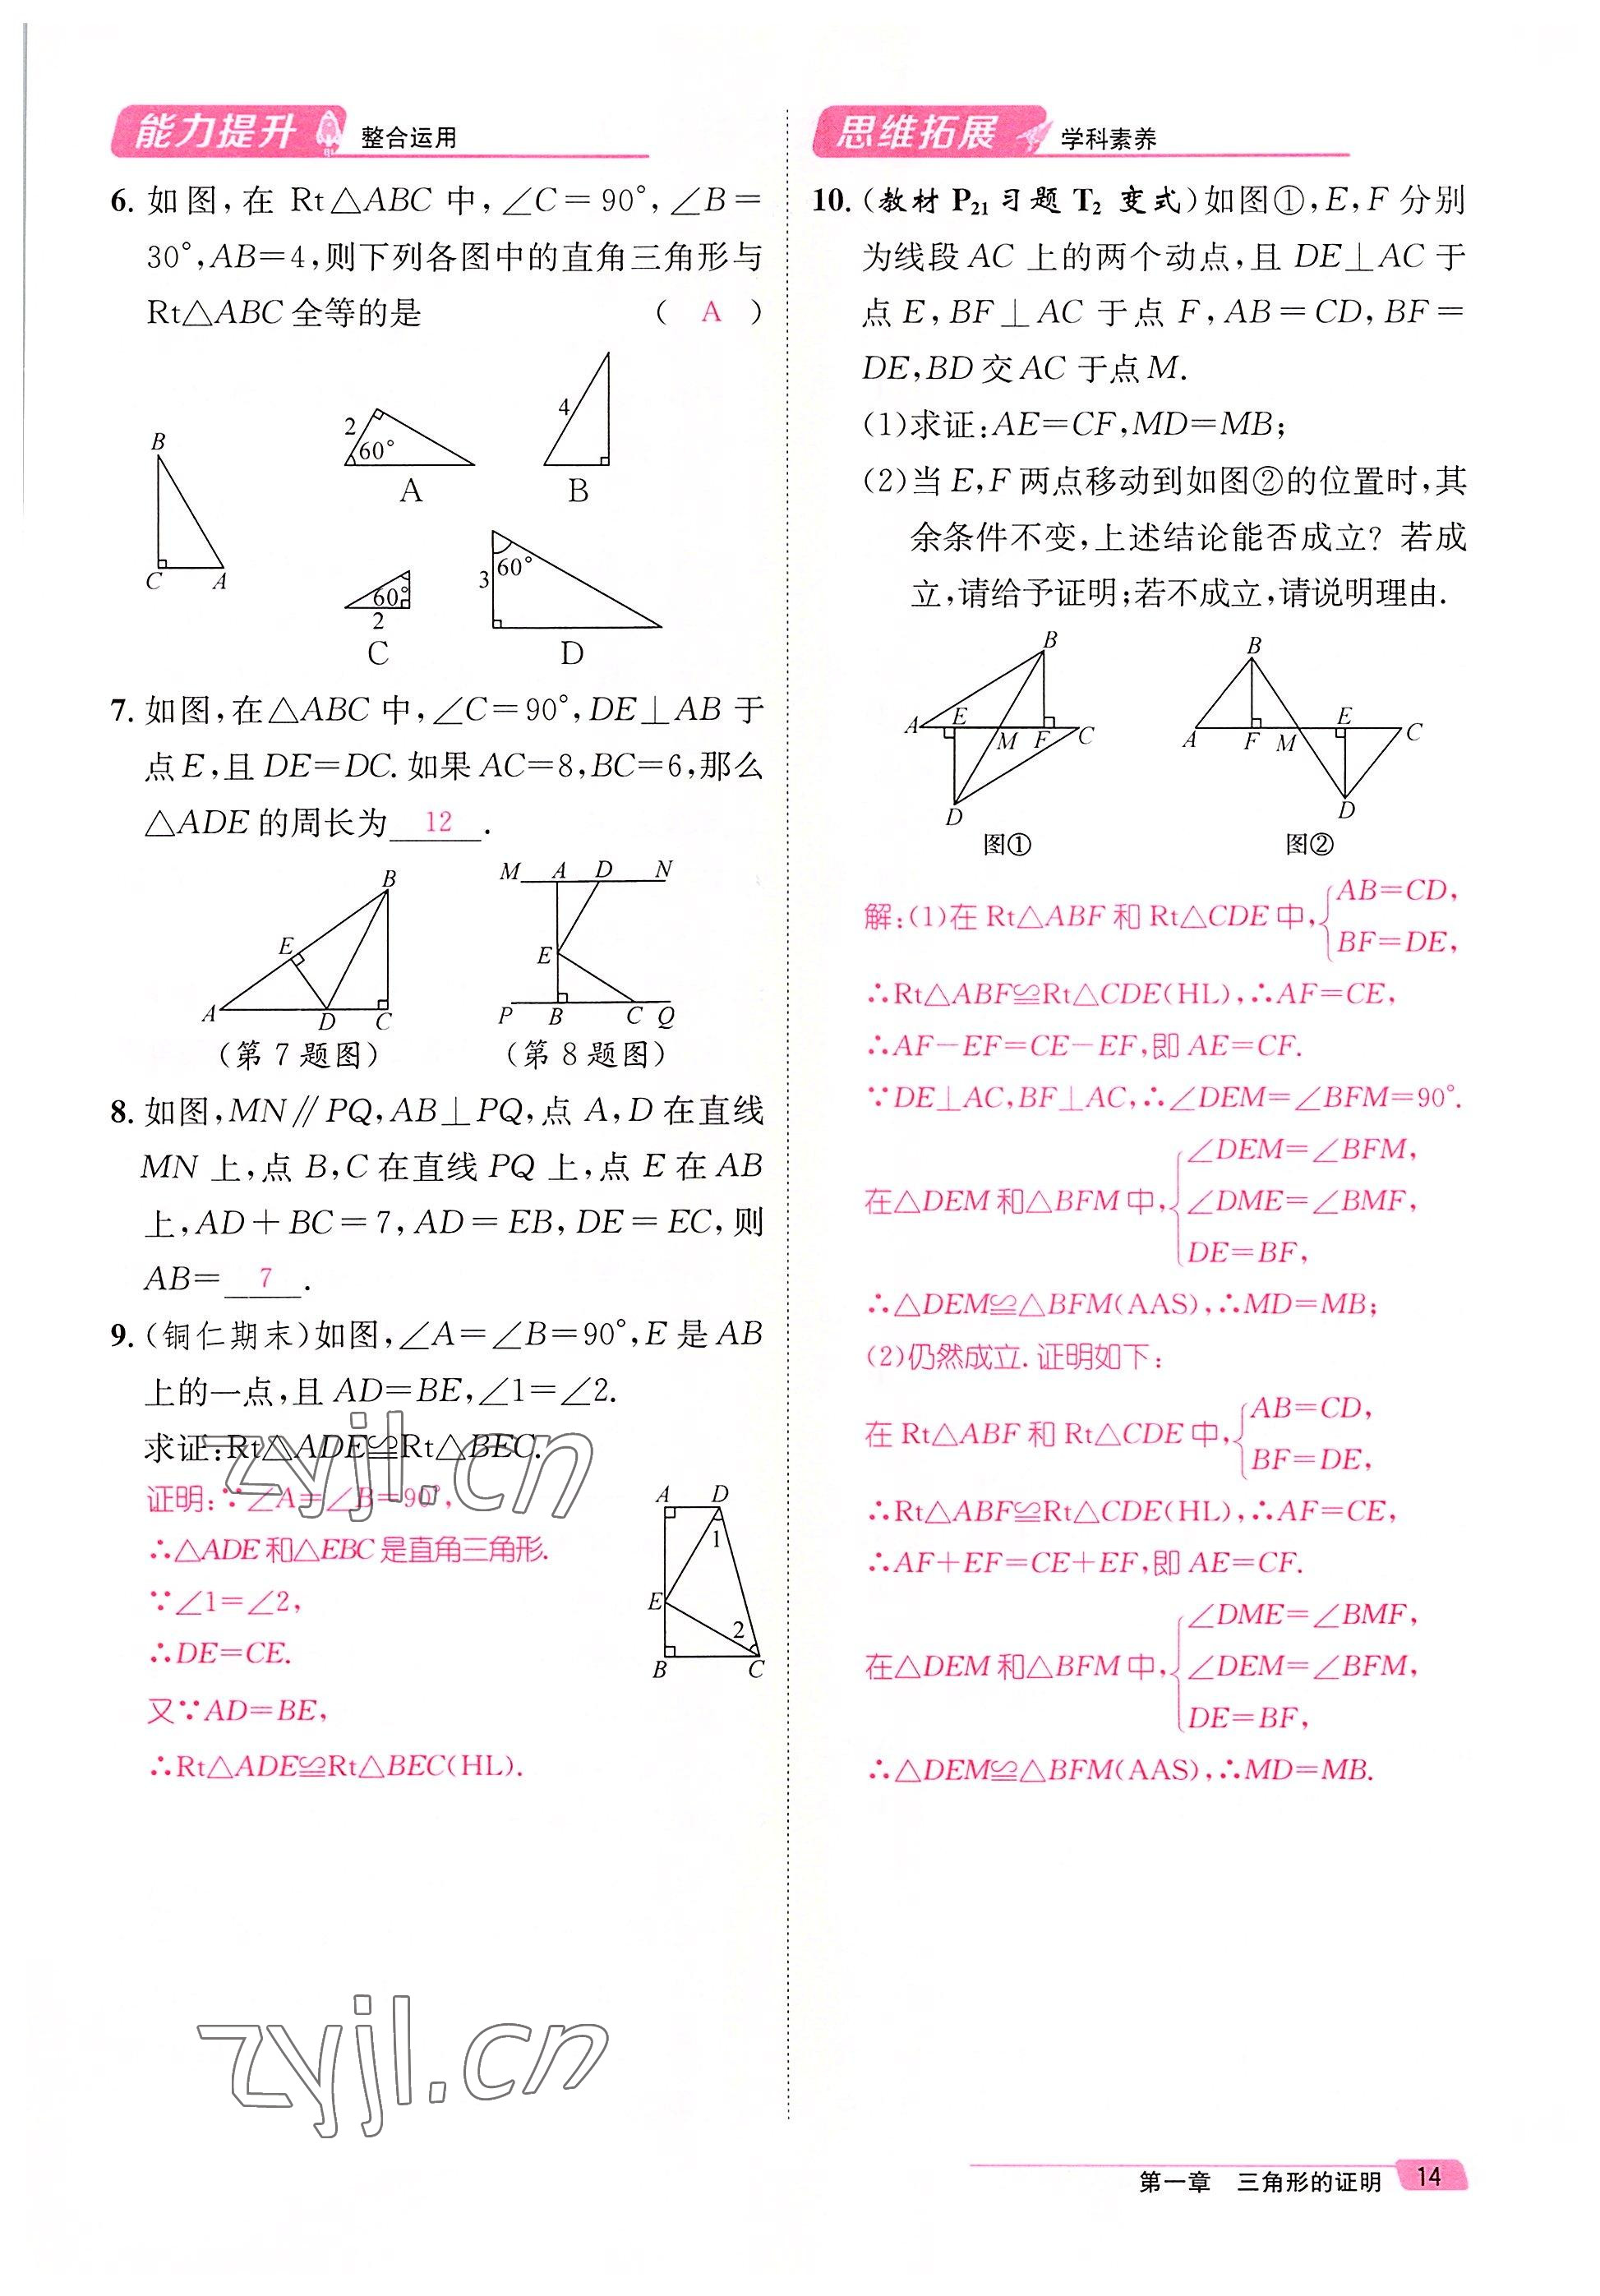 能力提升 整合运用
6. 如图,在 Rt△ABC 中,∠C=90°,∠B=
30°,AB=4,则下列各图中的直角三角形与
Rt△ABC 全等的是 ( A )
B
C A
2
60°
A
4
B
60°
2
C
3
60°
D
7. 如图,在△ABC 中,∠C=90°,DE⊥AB 于
点 E,且 DE=DC. 如果 AC=8,BC=6,那么
△ADE 的周长为 12 .
B
E
A D C
(第 7 题图)
M A D N
E
P B C Q
(第 8 题图)
8. 如图,MN∥PQ,AB⊥PQ,点 A,D 在直线
MN 上,点 B,C 在直线 PQ 上,点 E 在 AB
上,AD+BC=7,AD=EB,DE=EC,则
AB= 7 .
9. (铜仁期末)如图,∠A=∠B=90°,E 是 AB
上的一点,且 AD=BE,∠1=∠2.
求证:Rt△ADE≌Rt△BEC.
证明:∵∠A=∠B=90°,
∴△ADE 和△EBC 是直角三角形.
∵∠1=∠2,
∴DE=CE.
又∵AD=BE,
∴Rt△ADE≌Rt△BEC(HL).
A D
1
E
2
B C
zyjl.cn
zyjl.cn
思维拓展 学科素养
10. (教材 P21 习题 T2 变式)如图①,E,F 分别
为线段 AC 上的两个动点,且 DE⊥AC 于
点 E,BF⊥AC 于点 F,AB=CD,BF=
DE,BD 交 AC 于点 M.
(1)求证:AE=CF,MD=MB;
(2)当 E,F 两点移动到如图②的位置时,其
余条件不变,上述结论能否成立? 若成
立,请给予证明;若不成立,请说明理由.
B
A E M F C
D
图①
B
A F M E C
D
图②
解:(1)在 Rt△ABF 和 Rt△CDE 中,{AB=CD,
BF=DE,
∴Rt△ABF≌Rt△CDE(HL),∴AF=CE,
∴AF-EF=CE-EF,即 AE=CF.
∵DE⊥AC,BF⊥AC,∴∠DEM=∠BFM=90°.
∠DEM=∠BFM,
在△DEM 和△BFM 中,{∠DME=∠BMF,
DE=BF,
∴△DEM≌△BFM(AAS),∴MD=MB;
(2)仍然成立. 证明如下:
在 Rt△ABF 和 Rt△CDE 中,{AB=CD,
BF=DE,
∴Rt△ABF≌Rt△CDE(HL),∴AF=CE,
∴AF+EF=CE+EF,即 AE=CF.
∠DME=∠BMF,
在△DEM 和△BFM 中,{∠DEM=∠BFM,
DE=BF,
∴△DEM≌△BFM(AAS),∴MD=MB.
第一章 三角形的证明 14